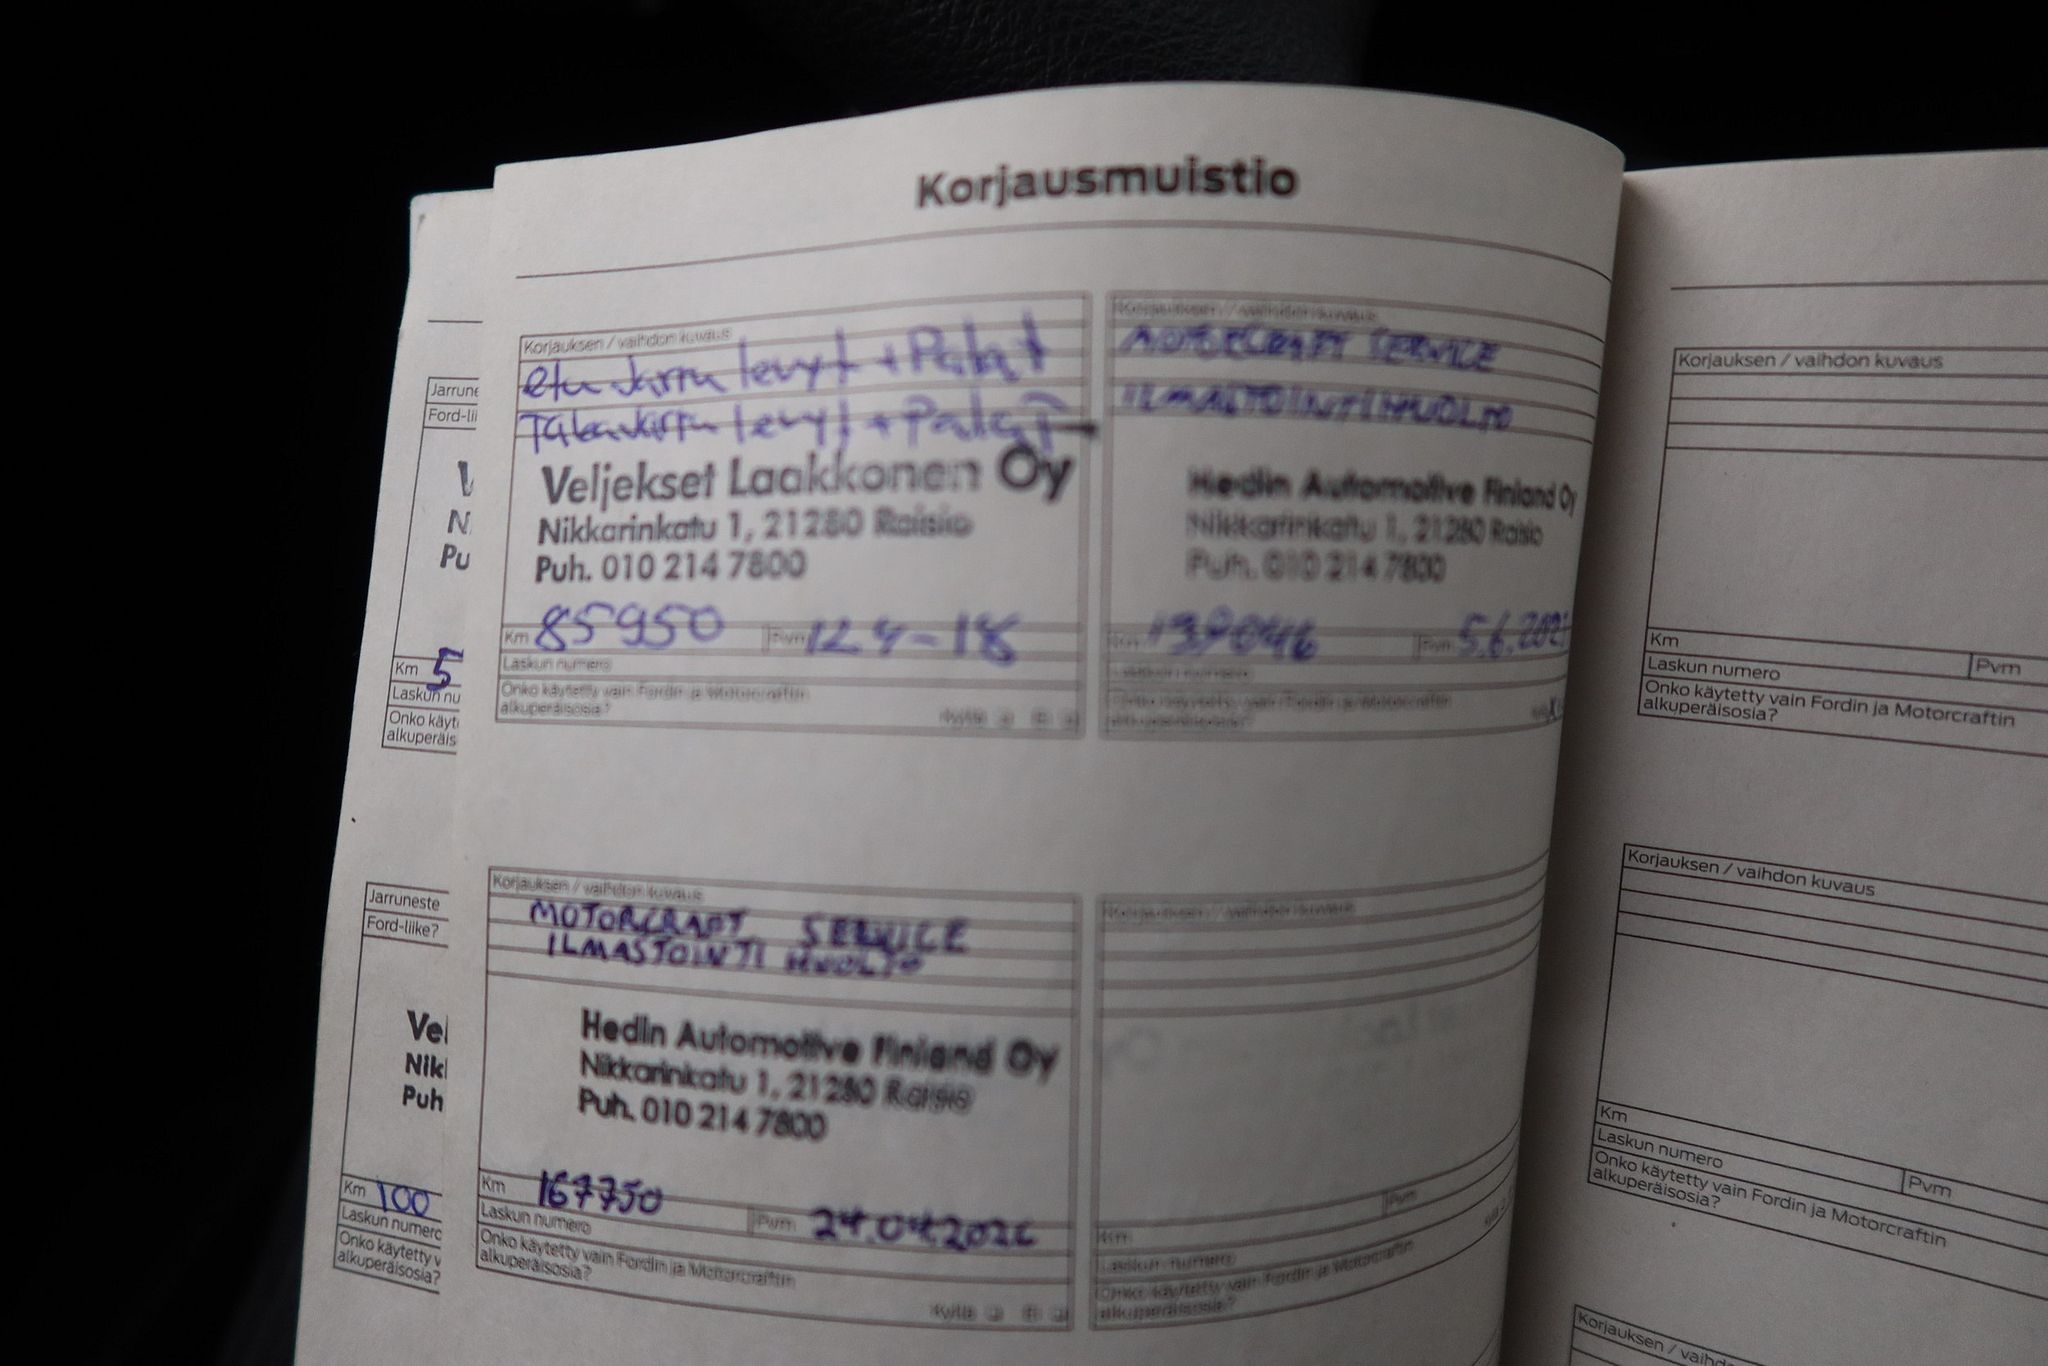 Korjausmuistio
Korjauksen / vaihdon kuvaus
etu Jarru levyt + Palat
Taka Jarru levyt + Palat
Veljekset Laakkonen Oy
Nikkarinkatu 1, 21280 Raisio
Puh. 010 214 7800
Km 85950 Pvm 12.4-18
Laskun numero
Onko käytetty vain Fordin ja Motorcraftin
alkuperäisosia?
Kyllä
Korjauksen / vaihdon kuvaus
SERVICE
ILMASTOINTIHUOLTO
Hedin Automotive Finland Oy
Nikkarinkatu 1, 21280 Raisio
Puh. 010 214 7800
Km 139046 Pvm 5.6.
Laskun numero
Onko käytetty vain Fordin ja Motorcraftin
alkuperäisosia?
Korjauksen / vaihdon kuvaus
MOTORCRAFT SERVICE
ILMASTOINTI HUOLTO
Hedin Automotive Finland Oy
Nikkarinkatu 1, 21280 Raisio
Puh. 010 214 7800
Km 167750
Laskun numero Pvm 24.04.
Onko käytetty vain Fordin ja Motorcraftin
alkuperäisosia?
Kyllä
Korjauksen / vaihdon kuvaus
Km Pvm
Laskun numero
Onko käytetty vain Fordin ja Motorcraftin
alkuperäisosia?
Jarrune
Ford-lii
V
N
Pu
Km 5
Laskun nu
Onko käyt
alkuperäis
Jarruneste
Ford-liike?
Vel
Nik
Puh
Km 100
Laskun numero
Onko käytetty v
alkuperäisosia?
Korjauksen / vaihdon kuvaus
Km
Laskun numero Pvm
Onko käytetty vain Fordin ja Motorcraftin
alkuperäisosia?
Korjauksen / vaihdon kuvaus
Km
Laskun numero Pvm
Onko käytetty vain Fordin ja Motorcraftin
alkuperäisosia?
Korjauksen / vaihdon kuvaus